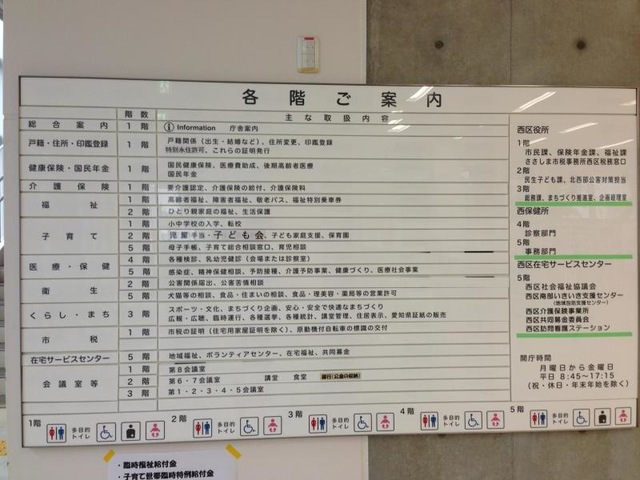 各階ご案内
階数 主な取扱内容
総合案内 1階 Information 庁舎案内
戸籍・住所・印鑑登録 1階 戸籍関係（出生・結婚など）、住所変更、印鑑登録
特別永住許可、これらの証明発行
健康保険・国民年金 1階 国民健康保険、医療費助成、後期高齢者医療
国民年金
介護保険 1階 要介護認定、介護保険の給付、介護保険料
福祉 1階 高齢者福祉、障害者福祉、敬老パス、福祉特別乗車券
2階 ひとり親家庭の福祉、生活保護
子育て 1階 小中学校の入学、転校
2階 児童手当・子ども会、子ども家庭支援、保育園
5階 母子手帳、子育て総合相談窓口、育児相談
医療・保健 4階 各種検診、乳幼児健診（会場または診察室）
5階 感染症、精神保健相談、予防接種、介護予防事業、健康づくり、医療社会事業
衛生 2階 公害関係届出、公害苦情相談
5階 犬猫等の相談、食品・住まいの相談、食品・理美容・薬局等の営業許可
くらし・まち 3階 スポーツ・文化、まちづくり企画、安心・安全で快適なまちづくり
広報・広聴、臨時運行、各種選挙、各種統計、講堂管理、住居表示、愛知県証紙の販売
市税 1階 市税の証明（住宅用家屋証明を除く）、原動機付自転車の標識の交付
在宅サービスセンター 5階 地域福祉、ボランティアセンター、在宅福祉、共同募金
会議室等 1階 第8会議室
2階 第6・7会議室 講堂 食堂 銀行(公金の収納)
3階 第1・2・3・4・5会議室
西区役所
1階
市民課、保険年金課、福祉課
ささしま市税事務所西区税務窓口
2階
民生子ども課、北西部公害対策担当
3階
総務課、まちづくり推進室、企画経理室
西保健所
4階
診察部門
5階
事務部門
西区在宅サービスセンター
5階
西区社会福祉協議会
西区南部いきいき支援センター
(地域包括支援センター)
西区介護保険事業所
西区共同募金委員会
西区訪問看護ステーション
開庁時間
月曜日から金曜日
平日 8:45〜17:15
（祝・休日・年末年始を除く）
1階 多目的トイレ 2階 多目的トイレ 3階 多目的トイレ 4階 多目的トイレ 5階 多目的トイレ
・臨時福祉給付金
・子育て世帯臨時特例給付金